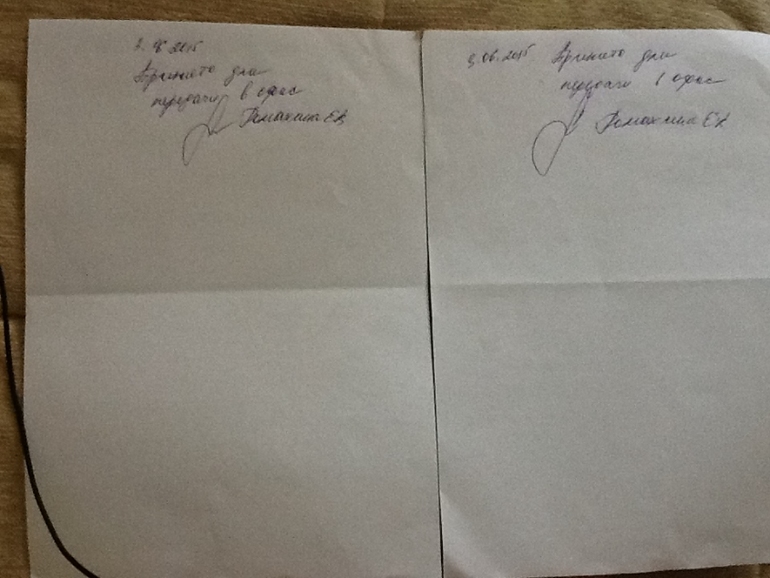 2015
Принято для
передачи в офис
Ромахина Е.В
9.06.2015 Принято для
передачи в офис
Ромахина Е.В